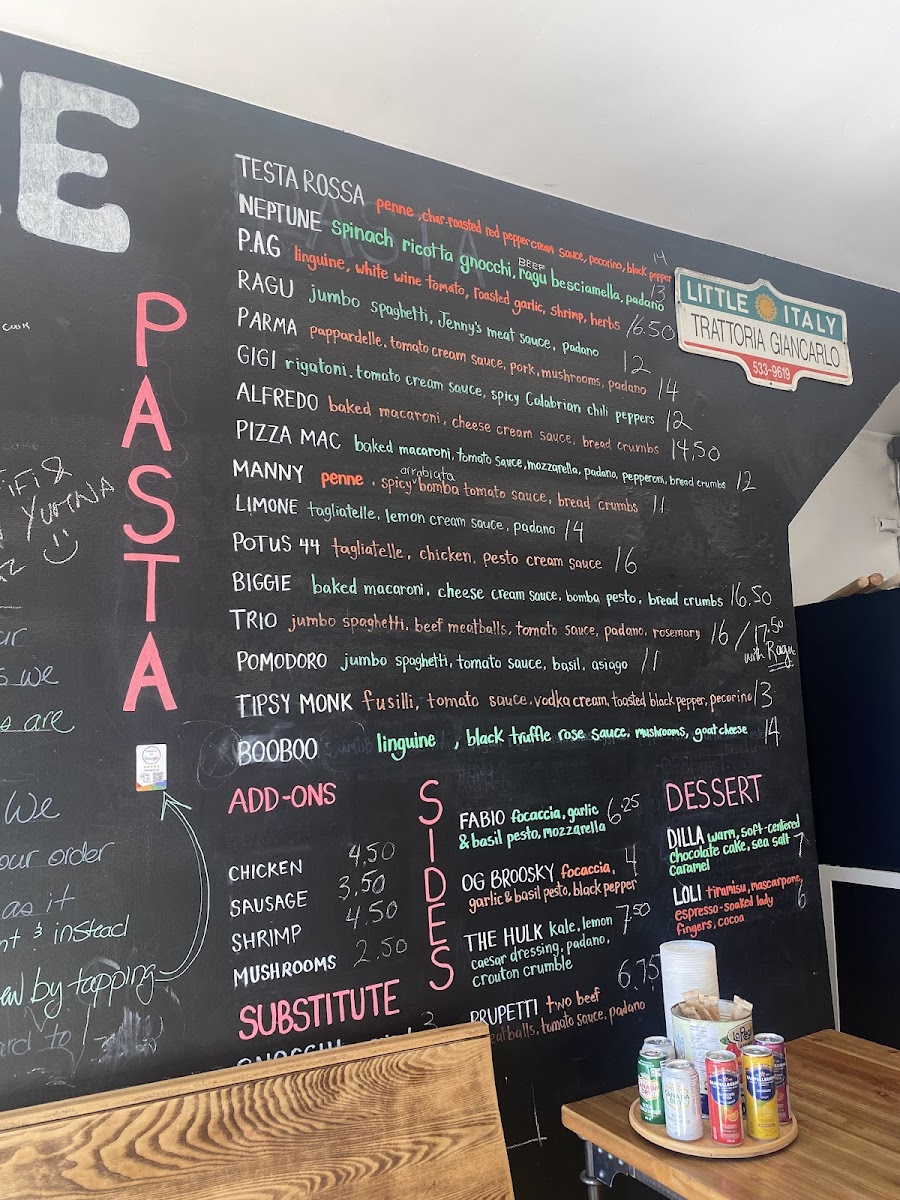 E
PASTA
TESTA ROSSA penne, char-roasted red pepper cream sauce, pecorino, black pepper 14
NEPTUNE spinach ricotta gnocchi, BEEF ragu besciamella, padano 13
P.A.G linguine, white wine tomato, roasted garlic, shrimp, herbs 16.50
RAGU jumbo spaghetti, Jenny's meat sauce, padano 12
PARMA pappardelle, tomato cream sauce, pork, mushrooms, padano 14
GIGI rigatoni, tomato cream sauce, spicy Calabrian chili peppers 12
ALFREDO baked macaroni, cheese cream sauce, bread crumbs 14,50
PIZZA MAC baked macaroni, tomato sauce, mozzarella, padano, pepperoni, bread crumbs 12
MANNY penne, spicy arrabiata bomba tomato sauce, bread crumbs 11
LIMONE tagliatelle, lemon cream sauce, padano 14
POTUS 44 tagliatelle, chicken, pesto cream sauce 16
BIGGIE baked macaroni, cheese cream sauce, bomba pesto, bread crumbs 16.50
TRIO jumbo spaghetti, beef meatballs, tomato sauce, padano, rosemary 16 / 17.50
with Ragu
POMODORO jumbo spaghetti, tomato sauce, basil, asiago 11
TIPSY MONK fusilli, tomato sauce, vodka cream, toasted black pepper, pecorino 13
BOOBOO linguine , black truffle rose sauce, mushrooms, goat cheese 14
LITTLE ITALY
TRATTORIA GIANCARLO
533-9619
COOK
FIFI &
YUMNA
s we
s are
We
our order
as it
nt & instead
ew by tapping
ard to
ADD-ONS
CHICKEN 4,50
SAUSAGE 3,50
SHRIMP 4.50
MUSHROOMS 2.50
SUBSTITUTE
SIDES
FABIO focaccia, garlic 6.25
& basil pesto, mozzarella
OG BROOSKY focaccia, 4
garlic & basil pesto, black pepper
THE HULK kale, lemon 7,50
caesar dressing, padano,
crouton crumble
PRUPETTI two beef 6,75
meatballs, tomato sauce, padano
DESSERT
DILLA warm, soft-centered
chocolate cake, sea salt 7
caramel
LOLI tiramisu, mascarpone,
espresso-soaked lady 6
fingers, cocoa